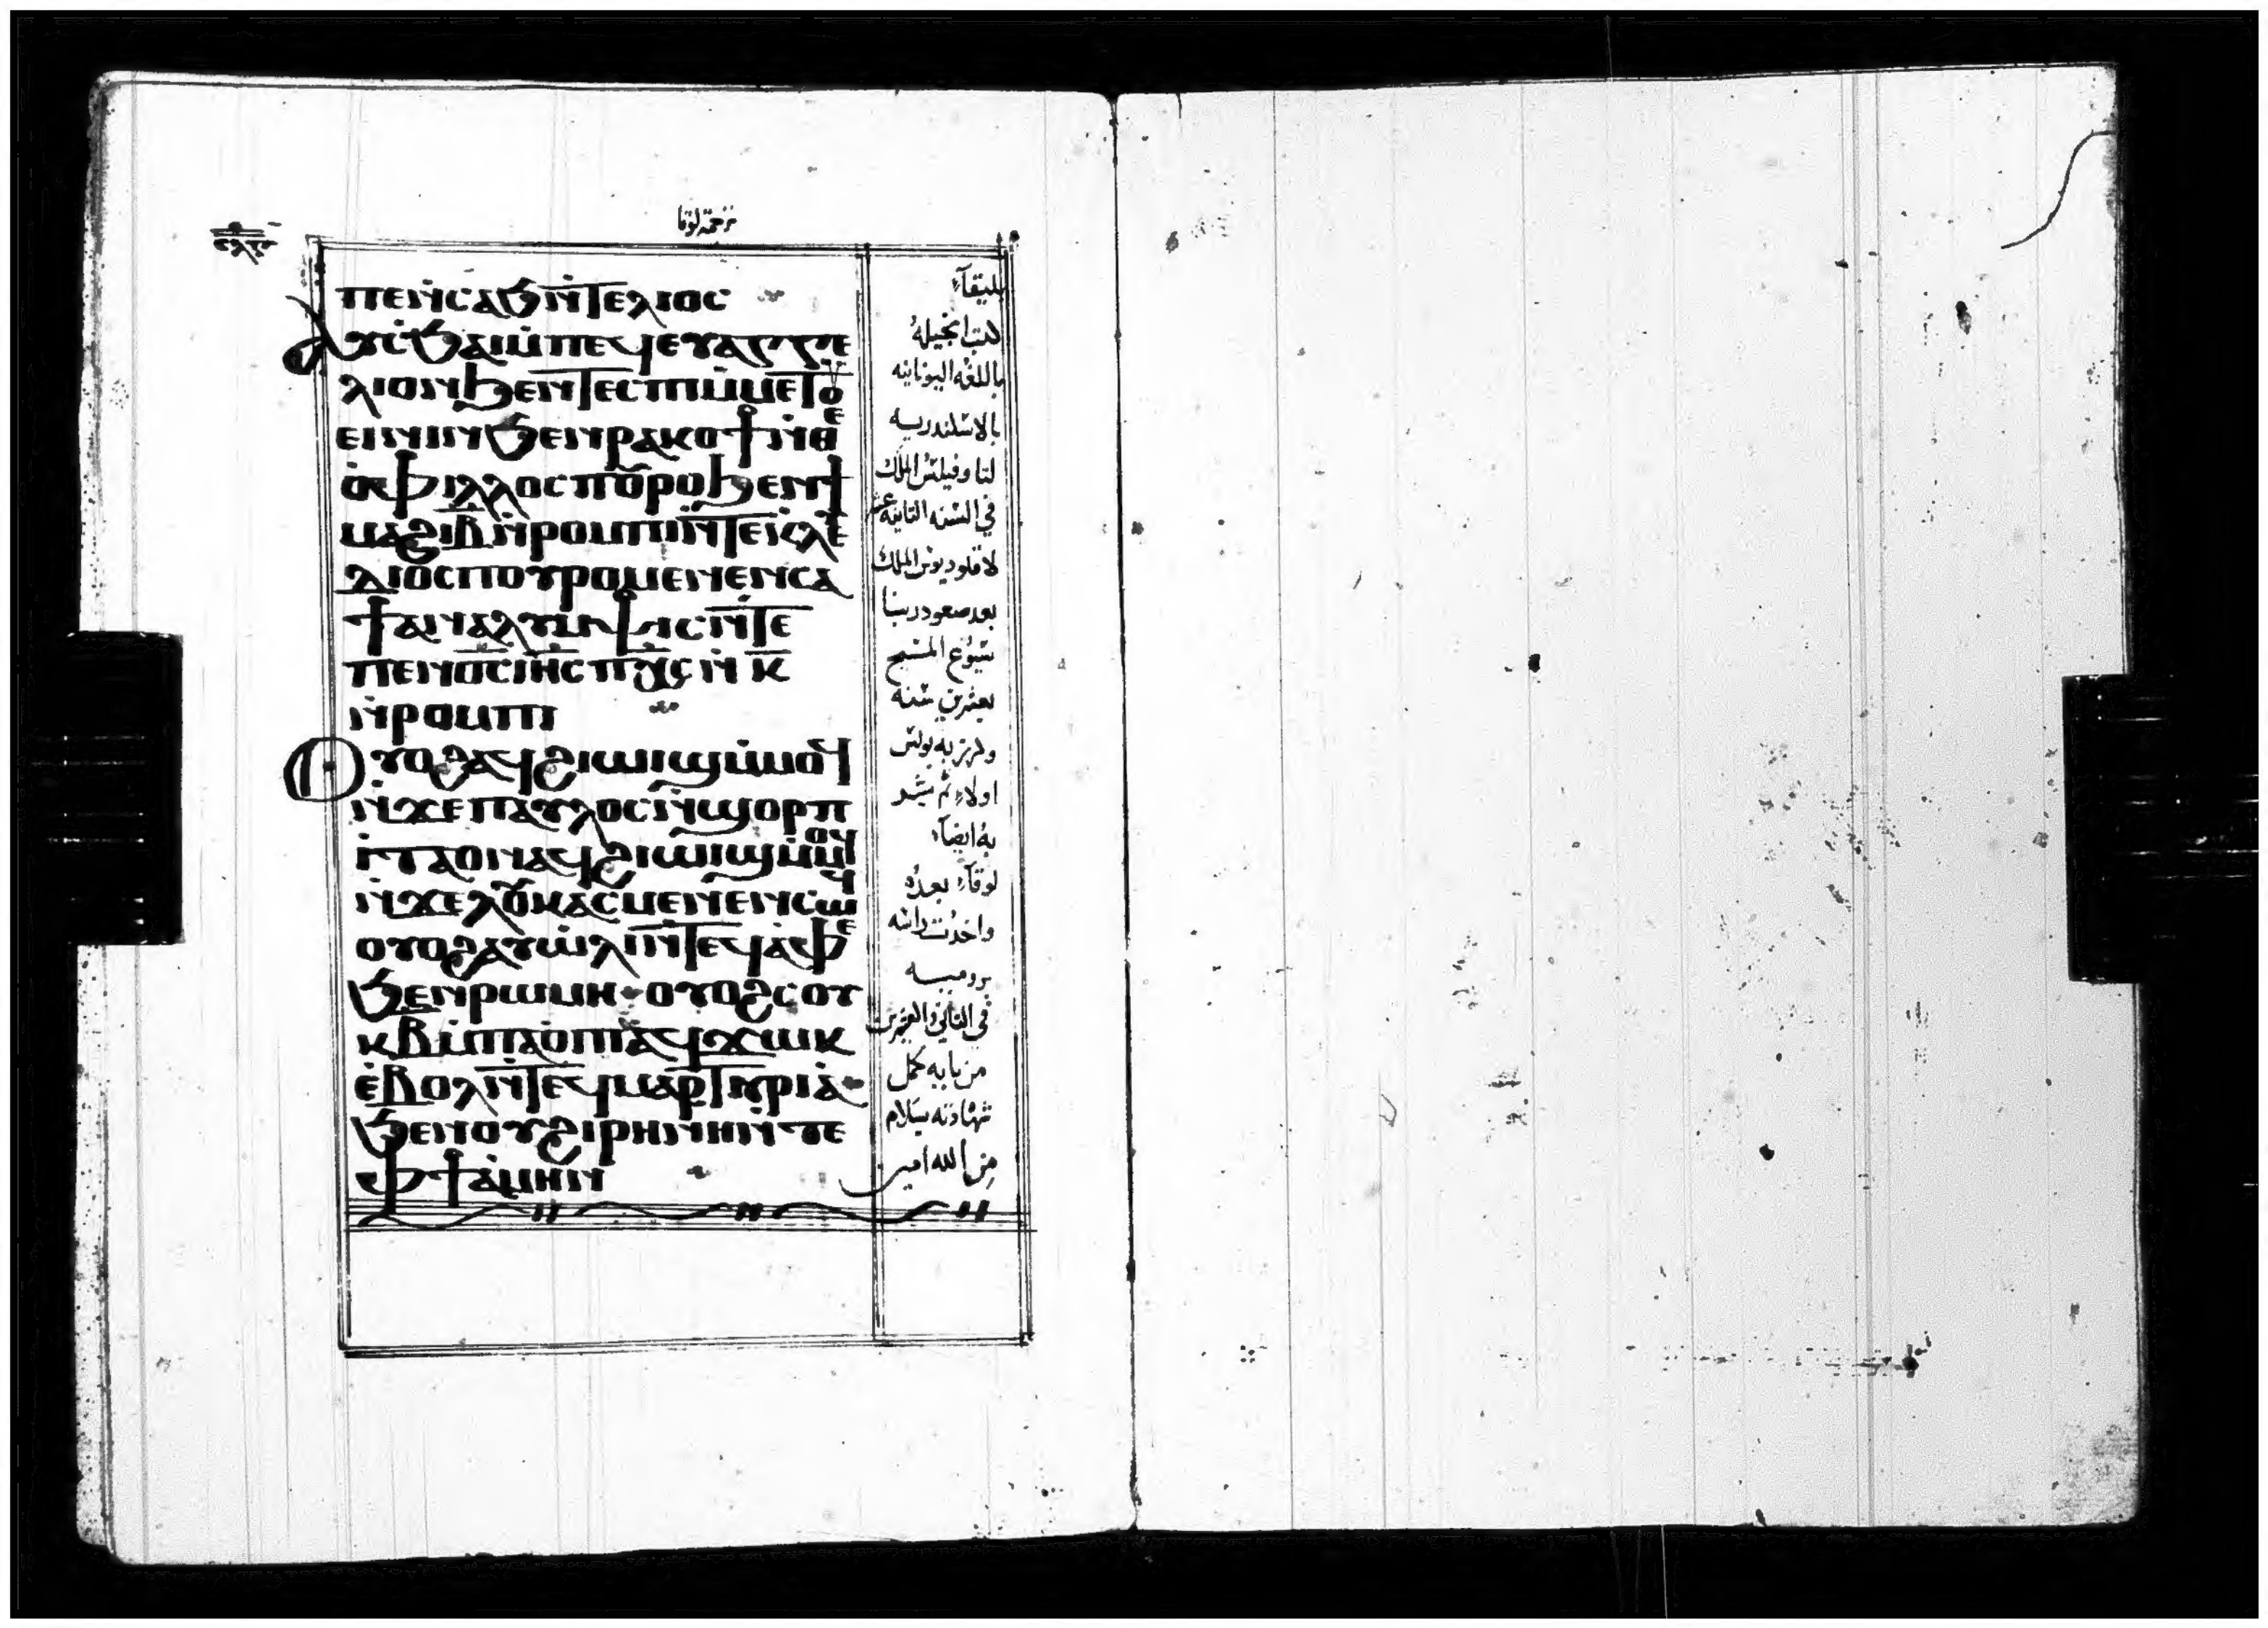 ترجمة لوقا
ⲡⲉⲛⲥⲁϧⲛ̀ⲧⲉⲗⲓⲟⲥ
ⲁϥⲥ̀ϧⲁⲓⲙ̀ⲡⲉϥⲉⲩⲁⲅⲅⲉ
ⲗⲓⲟⲛϧⲉⲛⲧⲉⲥⲡⲓⲙ̀ⲙⲉⲧⲟⲩ
ⲉⲓⲛⲓⲛϧⲉⲛⲣⲁⲕⲟϯⲛ̀ⲑⲉ
ⲟ̀ⲫⲓⲗⲗⲟⲥⲡⲟⲩⲣⲟϧⲉⲛϯ
ⲙⲁϩⲓⲃⲛ̀ⲣⲟⲙⲡⲓⲛ̀ⲧⲉ
ⲇⲓⲟⲥⲡⲟⲩⲣⲟⲙⲉⲛⲉⲛⲥⲁ
ϯⲁⲛⲁⲗⲩⲙⲯⲓⲥⲛ̀ⲧⲉ
ⲡⲉⲛⲟ̅ⲥ̅ⲓ̅ⲏ̅ⲥ̅ⲡ̅ⲭ̅ⲥ̅ⲛ̀ⲕ̅
ⲛ̀ⲣⲟⲙⲡⲓ
ⲟⲩⲟϩⲁϥϩⲓⲱⲓϣⲙ̀ⲙⲟϥ
ⲛ̀ϫⲉⲡⲁⲩⲗⲟⲥⲛ̀ϣⲟⲣⲡ
ⲓⲧⲁⲟⲛⲁϥϩⲓⲱⲓϣⲙ̀ⲙⲟϥ
ⲛ̀ϫⲉⲗⲟⲩⲕⲁⲥⲙⲉⲛⲉⲛⲥⲱϥ
ⲟⲩⲟϩⲁⲩⲱ̀ⲗⲓⲛ̀ⲧⲉϥⲁ̀ⲫⲉ
ϧⲉⲛⲣⲱⲙⲏ·ⲟⲩⲟϩⲥⲟⲩ
ⲕⲃⲙ̀ⲡⲁⲟ̀ⲡⲓⲁϥϫⲱⲕ
ⲉ̀ⲃⲟⲗⲛ̀ⲧⲉϥⲙⲁⲣⲧⲩⲣⲓⲁ̀·
ϧⲉⲛⲟⲩϩⲓⲣⲏⲛⲏⲛ̀ⲧⲉ
ⲫϯⲁ̀ⲙⲏⲛ
بليقآء
كتب انجيله
باللغه اليونانيه
بالاسكندريه
لتاوفيلس الملك
في السنه الثانيه عشر
لاقلوديوس الملك
بعد صعود ربنا
يسوع المسيح
بعشرين سنه
وكرز به بولس
اولاء ثم بشر
به ايضآء
لوقآء بعده
واخدت راسه
بروميه
في الثاني والعشرين
من بابه كمل
شهادته بسلام
من الله امين